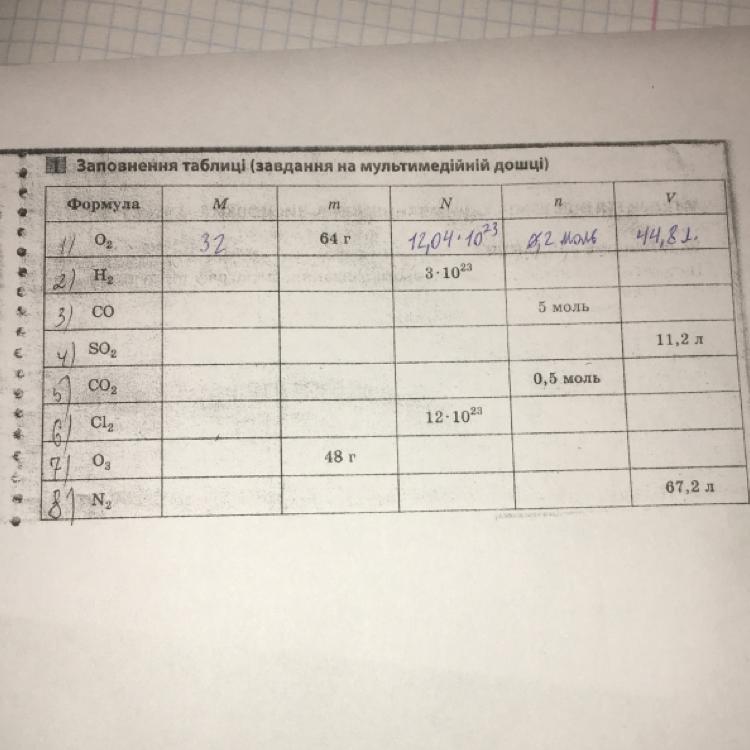 1 Заповнення таблиці (завдання на мультимедійній дошці)
Формула M m N n V
1) O₂ 32 64 г 12,04·10²³ 2 моль 44,8 л.
2) H₂ 3·10²³
3) CO 5 моль
4) SO₂ 11,2 л
5) CO₂ 0,5 моль
6) Cl₂ 12·10²³
7) O₃ 48 г
8) N₂ 67,2 л